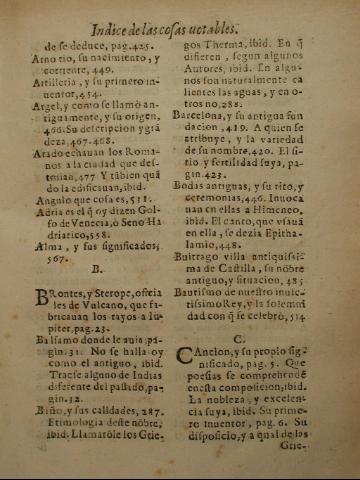 Indice de las cosas notables.
de se deduce, pag. 425.
Arno rio, su nacimiento, y
corriente, 449.
Artilleria, y su primero in-
uentor, 454.
Argel, y como se llamò an-
tiguamente, y su origen,
466. Su descripcion y grã
deza, 467. 468.
Arado echauan los Roma-
nos a la ciudad que des-
truian, 477 Y tãbien quã
do la edificauan, ibid.
Angulo que cosa es, 531.
Adria es el q̃ oy dizen Gol-
fo de Venecia, ò Seno Ha
driatico, 558.
Alma, y sus significados,
567.
B.
BRontes, y Sterope, oficia
les de Vulcano, que fa-
bricauan los rayos a Iu-
piter, pag. 23.
Balsamo donde le auia, pa-
gin. 31. No se halla oy
como el antiguo, ibid.
Traese alguno de Indias
diferente del passado, pa-
gin. 32.
Biño, y sus calidades, 287.
Etimologia deste nõbre,
ibid. Llamaròle los Grie-
gos Therma, ibid. En q̃
difieren, segun algunos
Autores, ibid. En algu-
nos son naturalmente ca
lientes las aguas, y en o-
tros no, 288.
Barcelona, y su antigua fun
dacion, 419. A quien se
atribuye, y la variedad
de su nombre, 420. El si-
tio y fertilidad suya, pa-
gin. 423.
Bodas antiguas, y su rito, y
ceremonias, 446. Inuoca
uan en ellas a Himeneo,
ibid. El canto, que vsauã
en ella, se dezia Epitha-
lamio, 448.
Buitrago villa antiquissi-
ma de Castilla, su nõbre
antiguo, y situacion, 485
Bautismo de nuestro inuic-
tissimo Rey, y la solemni
dad con q̃ se celebrò, 514
C.
CAncion, y su propio sig-
nificado, pag. 5. Que
poesias se comprehendẽ
en esta composicion, ibid.
La nobleza, y excelen-
cia suya, ibid. Su prime-
ro inuentor, pag. 6. Su
disposicio, y a qual de las
Grie-